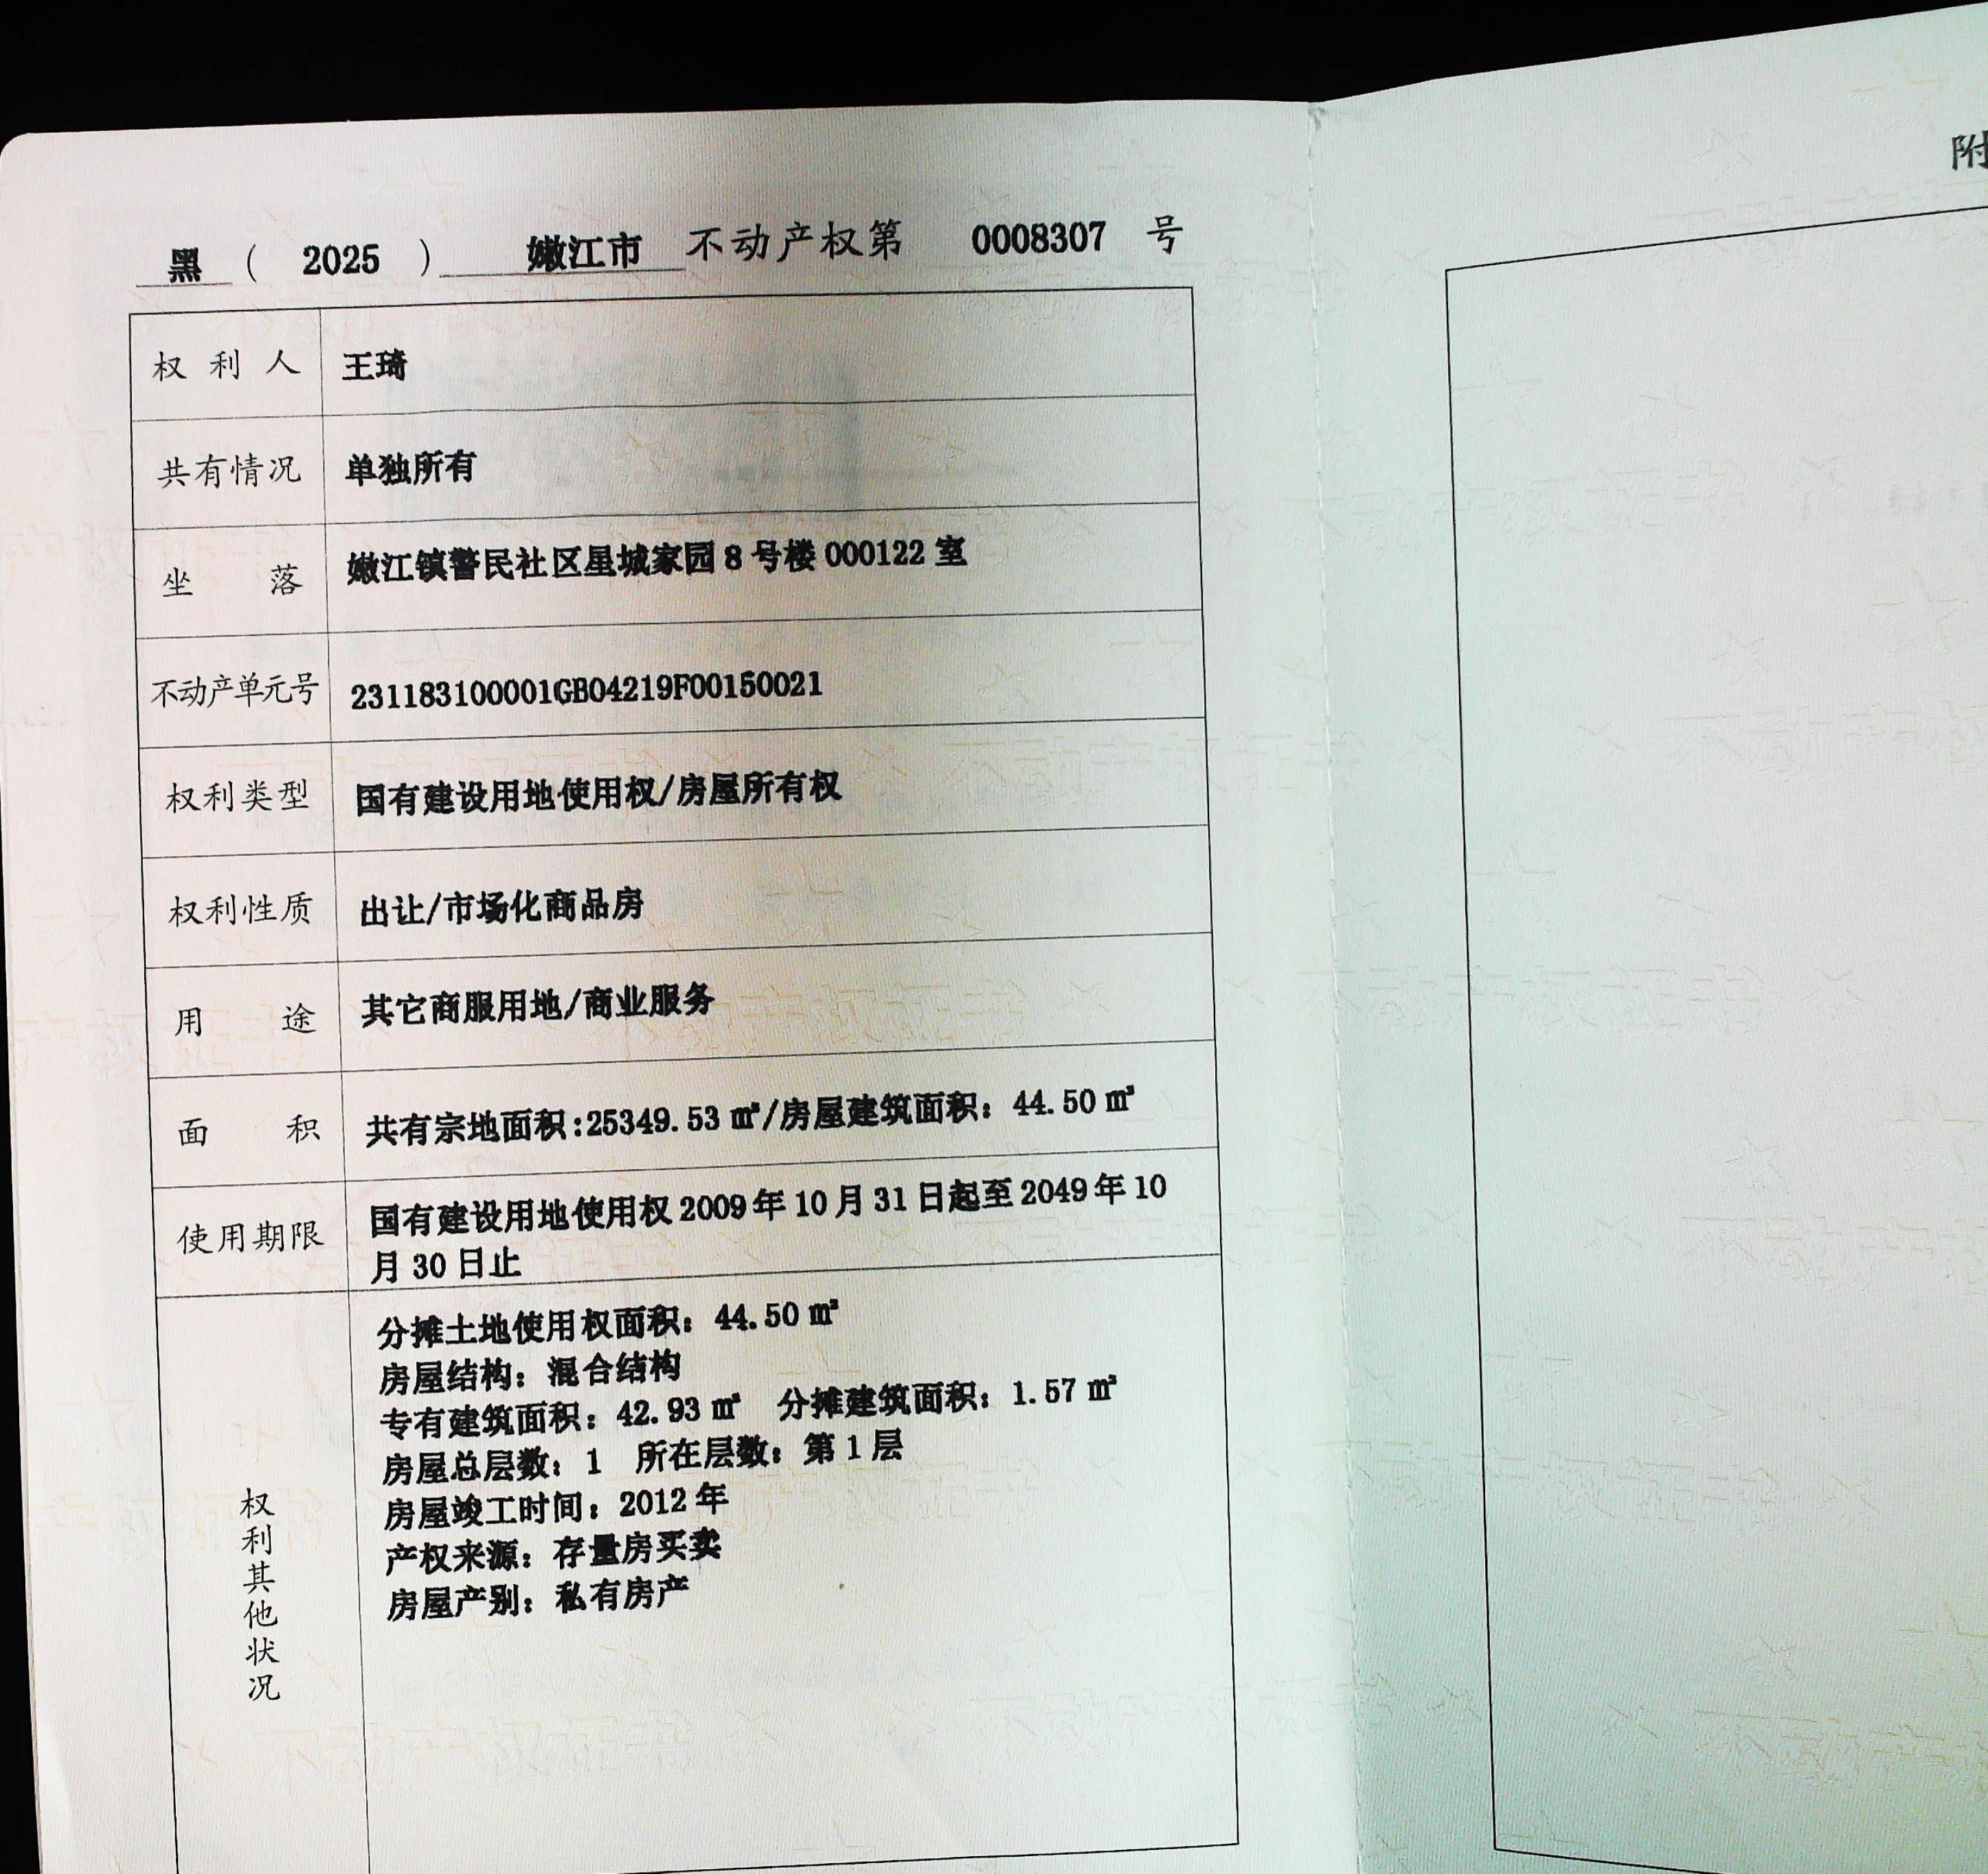 黑 ( 2025 ) 嫩江市 不动产权第 0008307 号
权利人 王琦
共有情况 单独所有
坐落 嫩江镇警民社区星城家园8号楼000122室
不动产单元号 231183100001GB04219F00150021
权利类型 国有建设用地使用权/房屋所有权
权利性质 出让/市场化商品房
用途 其它商服用地/商业服务
面积 共有宗地面积:25349.53㎡/房屋建筑面积：44.50㎡
使用期限 国有建设用地使用权2009年10月31日起至2049年10
月30日止
权利其他状况
分摊土地使用权面积：44.50㎡
房屋结构：混合结构
专有建筑面积：42.93㎡ 分摊建筑面积：1.57㎡
房屋总层数：1 所在层数：第1层
房屋竣工时间：2012年
产权来源：存量房买卖
房屋产别：私有房产
附